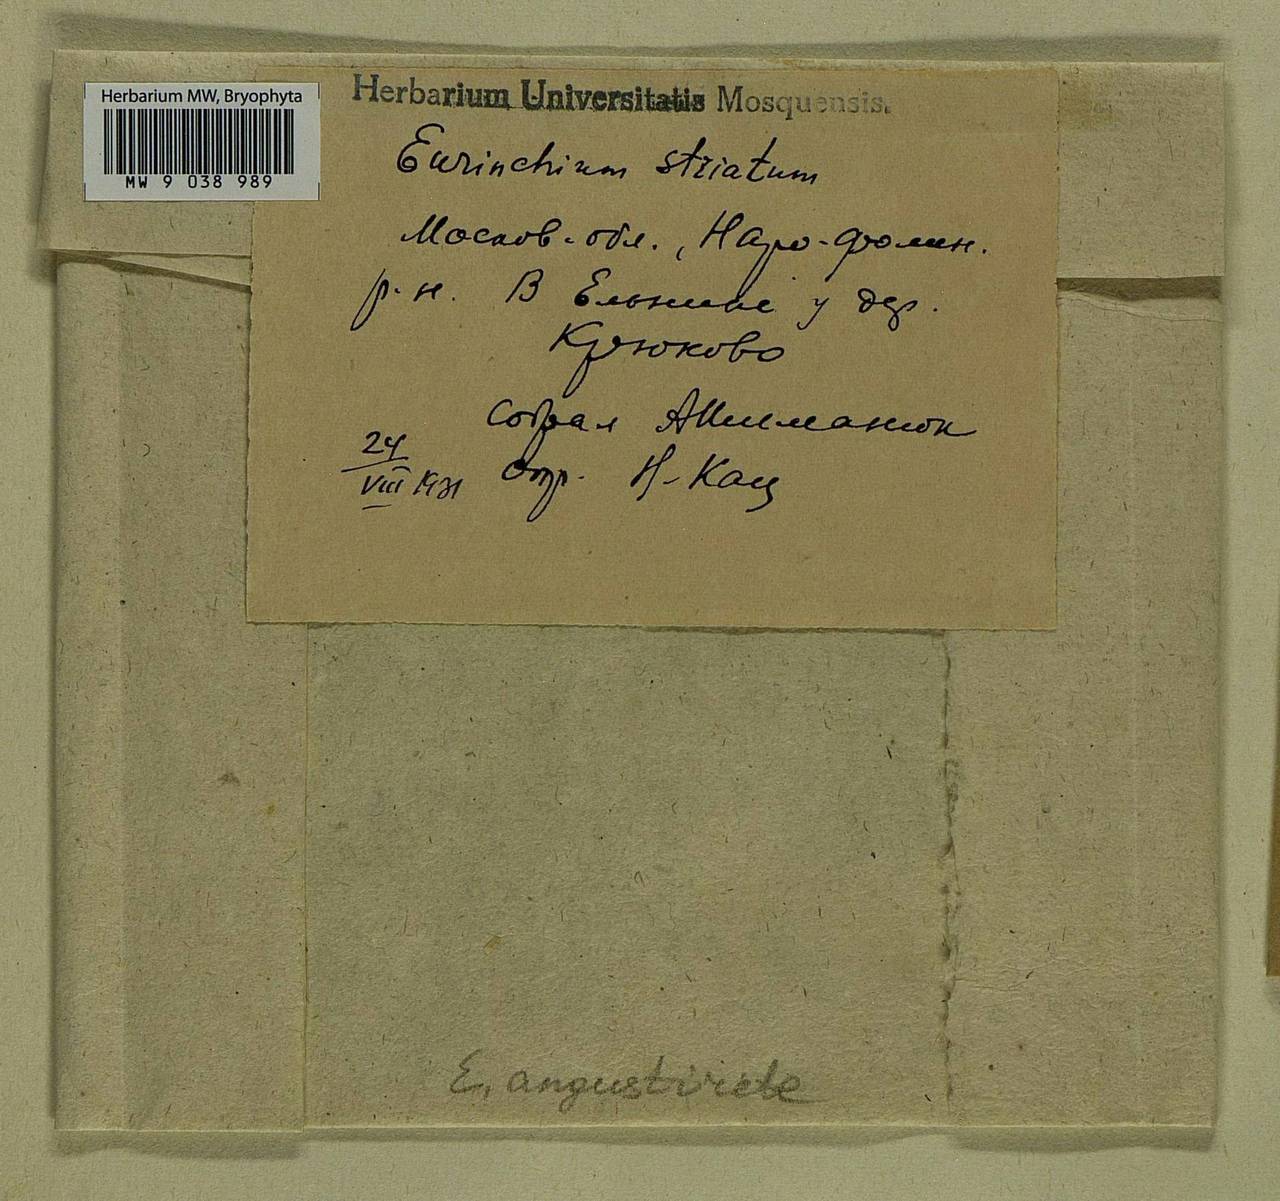 Herbarium MW, Bryophyta
MW 9 038 989
Herbarium Universitatis Mosquensis.
Eurinchium striatum
Москов. обл., Наро-фомин.
р-н. В Ельнике у дер.
Крюково
собрал
24
VIII 1931 опр. Н. Кац
E. angustirete